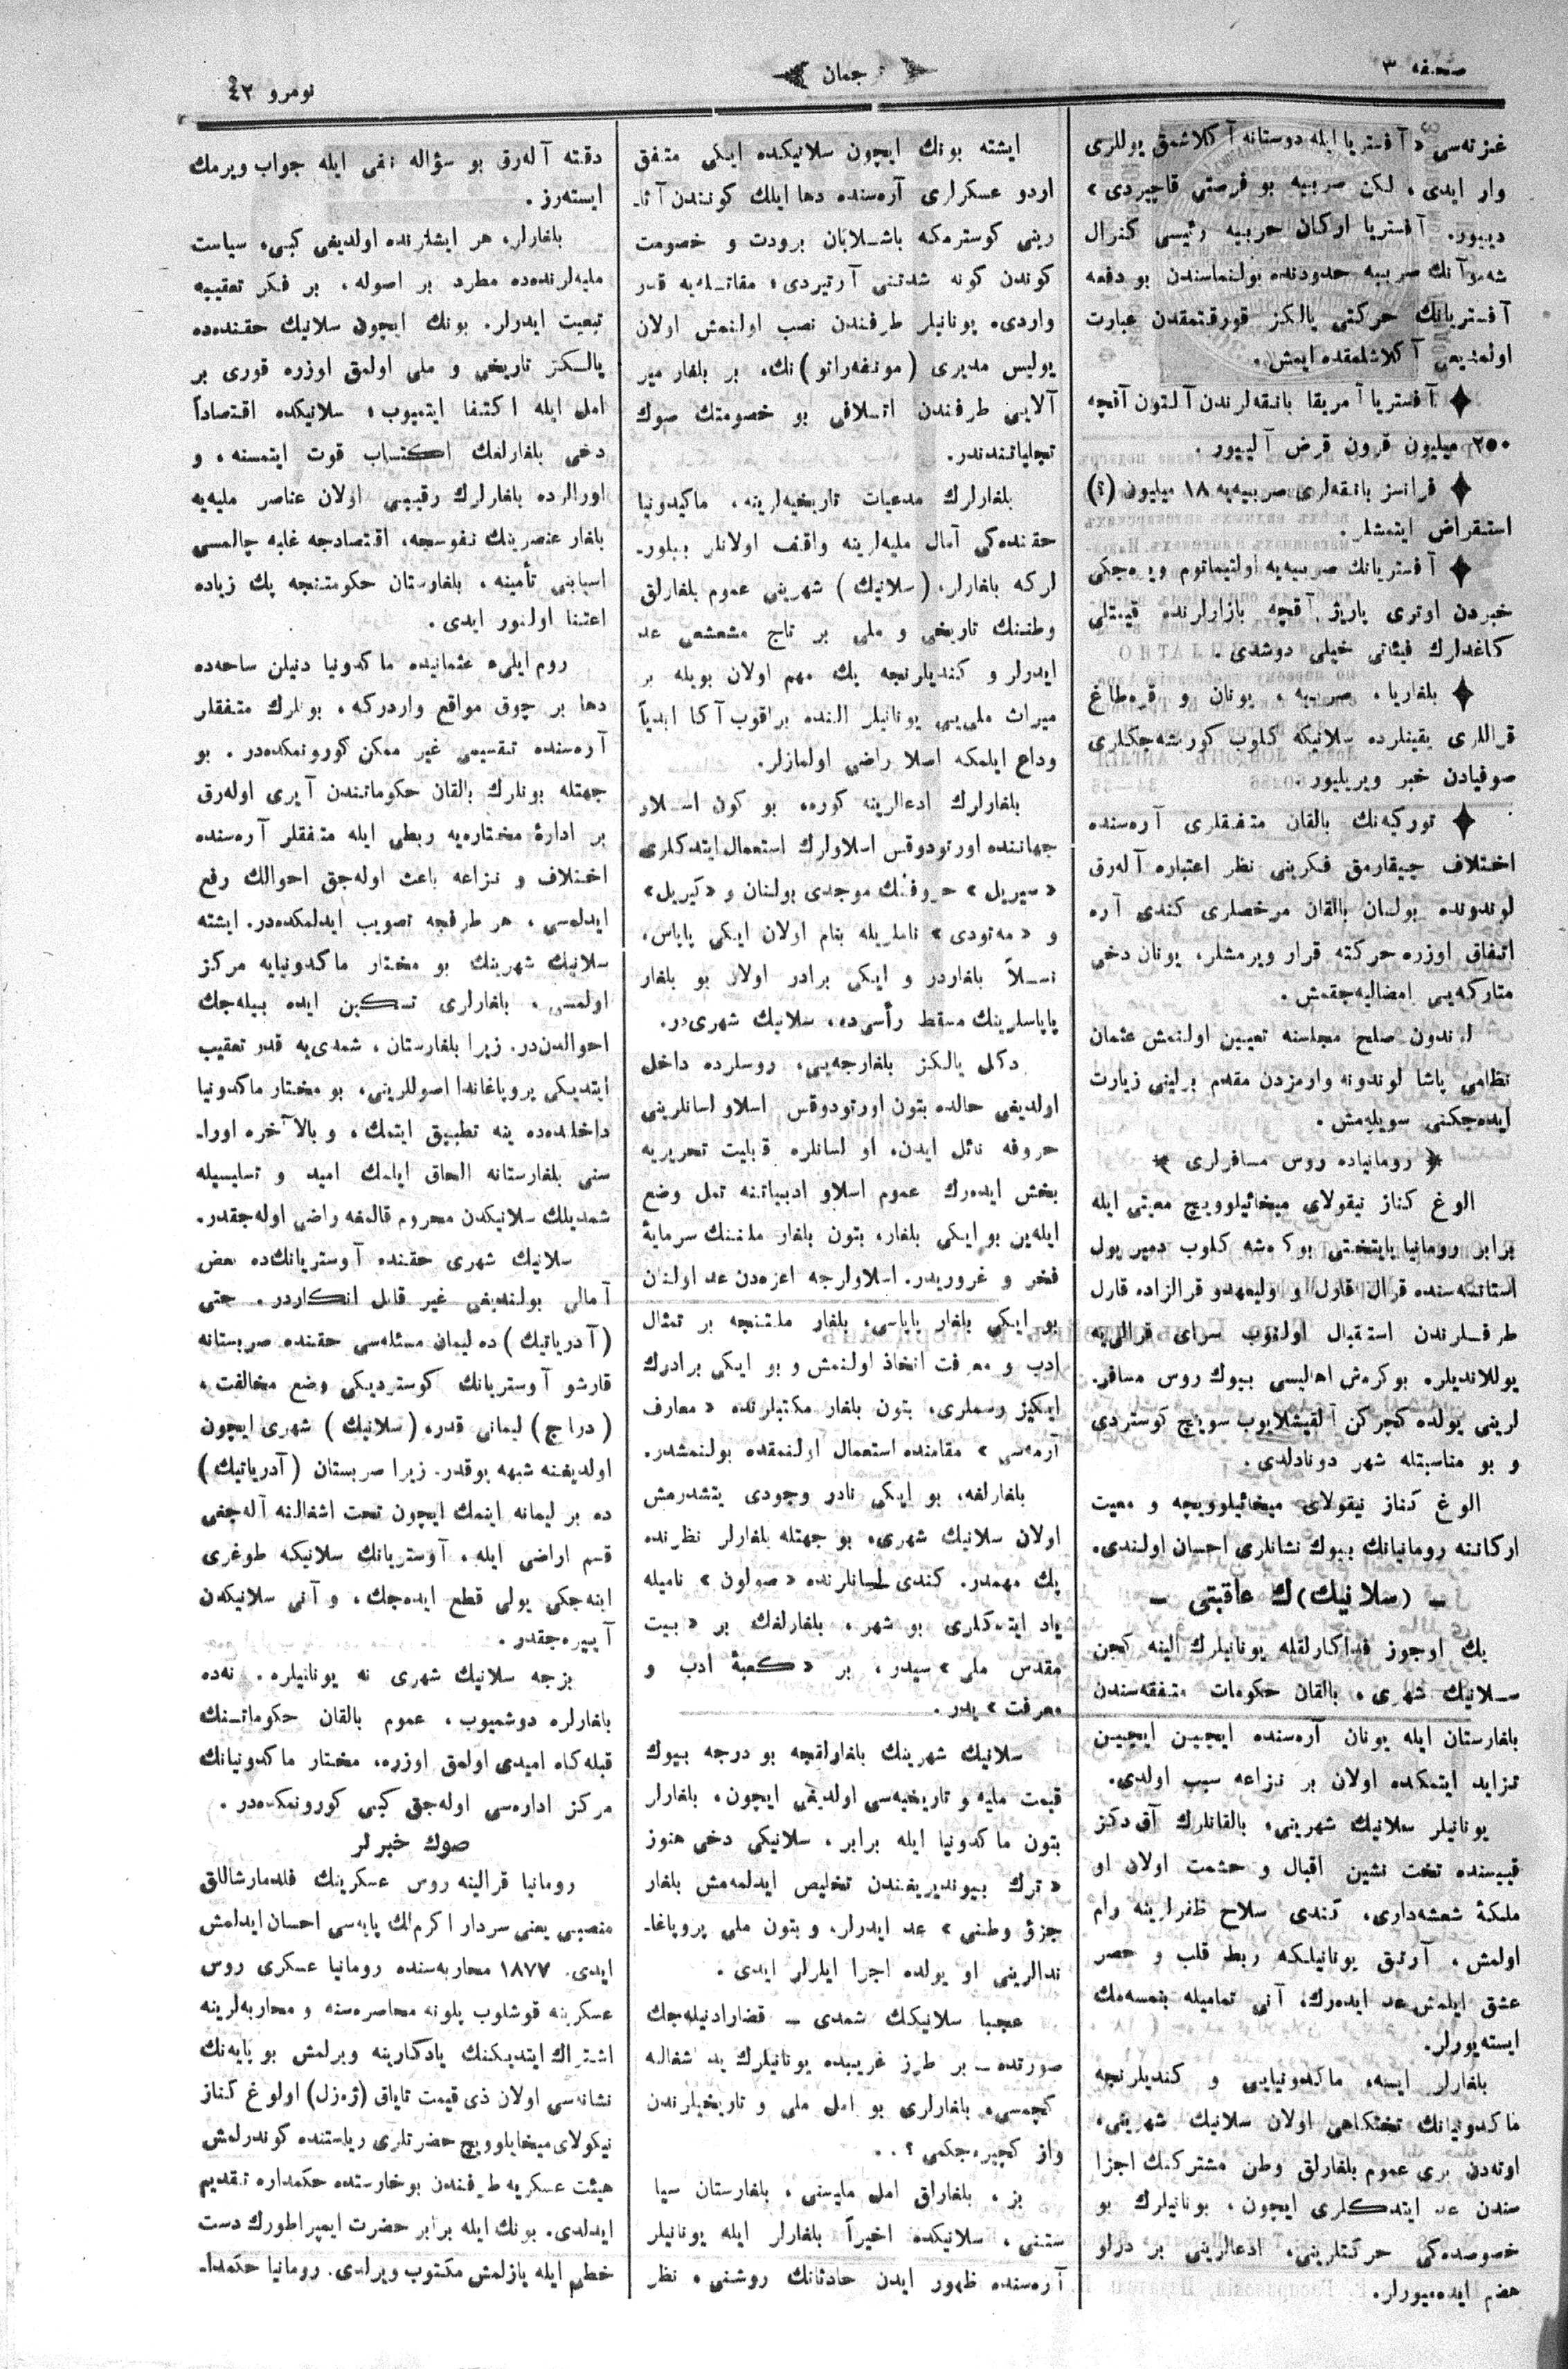 صحیفه ٣
ترجمان
نومرو ٤٢
غزته‌سی «آفستریا ایله دوستانه آكلاشمق یوللری
وار ایدی، لكن صربیه بو فرصتی قاچیردی»
دییور. آفستریا اركان حربیه رئیسی كنرال
شه‌موآنك صربیه حدودنده بولنماسندن بو دفعه
آفستریانك حركتی یالكز قورقتمقدن عبارت
اولمدیغی آكلاشلمقده ایمش.
آفستریا آمریقا بانقه‌لرندن آلتون آقچه
٢٥٠ میلیون قرون قرض آلییور.
فرانسز بانقه‌لری صربیه‌یه ١٨ میلیون (؟)
استقراض ایتمشلر.
آفستریانك صربیه‌یه اولتیماتوم ویره‌جكی
خبردن اوتری پاریژ آقچه بازارلرنده قیمتلی
كاغدلرك فیئاتی خیلی دوشدی.
بلغاریا، صربیه، یونان و قره‌طاغ
قراللری یقینلرده سلانیكه كلوب كورشه‌جكلری
صوفیادن خبر ویریلیور.
توركیه‌نك بالقان متفقلری آره‌سنده
اختلاف چیقارمق فكرینی نظر اعتباره آله‌رق
لوندونده بولنان بالقان مرخصلری كندی آره
اتفاق اوزره حركته قرار ویرمشلر، یونان دخی
متاركه‌یی امضالیه‌جقمش.
لوندون صلح مجلسنه تعیین اولنمش عثمان
نظامی پاشا لوندونه وارمزدن مقدم برلینی زیارت
ایده‌جكنی سویله‌مش.
﴿ رومانیاده روس مسافرلری ﴾
الوغ كناز نیقولای میخائیلوویچ معیتی ایله
برابر رومانیا پایتختی بوكره‌شه كلوب دمیر یول
استانسه‌سنده قرال قاول و ولیعهدو قرالزاده قارل
طرفلرندن استقبال اولنوب سرای قرالی‌یه
یوللاندیلر. بوكره‌ش اهالیسی بیوك روس مسافر-
لرینی یولده كچركن آلقیشلایوب سوینچ كوستردی
و بو مناسبتله شهر دونادلدی.
الوغ كناز نیقولای میخائیلوویچه و معیت
اركاننه رومانیانك بیوك نشانلری احسان اولندی.
— (سلانیك)ك عاقبتی —
پك اوجوز فداكارلقله یونانیلرك الینه كچن
سلانیك شهری، بالقان حكومات متفقه‌سندن
بلغارستان ایله یونان آره‌سنده ایچین ایچین
تزاید ایتمكده اولان بر نزاعه سبب اولدی.
یونانیلر سلانیك شهرینی، بالقانلرك آق دكز
قپیسنده تخت نشین اقبال و حشمت اولان او
ملكۀ شعشه‌داری، كندی سلاح ظفرلرینه رام
اولمش، آرتق یونانیلكه ربط قلب و حصر
عشق ایلمش عد ایده‌رك، آنی تمامیله بنمسه‌مك
ایسته‌یورلر.
بلغارلر ایسه، ماكدونیایی و كندیلرنجه
ماكدونیانك تختكاهی اولان سلانیك شهرینی،
اوته‌دن بری عموم بلغارلق وطن مشتركنك اجزا
سندن عد ایتدكلری ایچون، یونانیلرك بو
خصوصده‌كی حركتلرینی، ادعالرینی بر درلو
هضم ایده‌میورلر.
ایشته بونك ایچون سلانیكده ایكی متفق
اردو عسكرلری آره‌سنده دها ایلك كونندن آثا-
رینی كوسترمكه باشلایان برودت و خصومت
كوندن كونه شدتنی آرتیردی؛ مقاتله‌یه قدر
واردی، یونانیلر طرفندن نصب اولنمش اولان
پولیس مدیری (مونفه‌راتو)نك، بر بلغار میر
آلایی طرفندن اتلافی بو خصومتك صوك
تجلیاتندندر.
بلغارلرك مدعیات تاریخیه‌لرینه، ماكیدونیا
حقنده‌كی آمال ملیه‌لرینه واقف اولانلر بیلور-
لركه بلغارلر، (سلانیك) شهرینی عموم بلغارلق
وطننك تاریخی و ملی بر تاج مشعشعی عد
ایدرلر و كندیلرنجه پك مهم اولان بویله بر
میراث ملی‌یی یونانیلر النده براقوب آكا ابدیاً
وداع ایلمكه اصلا راضی اولمازلر.
بلغارلرك ادعالرینه كوره، بو كون اسلاو
جهاننده اورتودوقس اسلاولرك استعمال ایتدكلری
«سیریل» حروفنك موجدی بولنان و «كیریل»
و «مه‌تودی» ناملریله بنام اولان ایكی پاپاس،
نسلاً بلغاردر و ایكی برادر اولان بو بلغار
پاپاسلرینك مسقط رأسی‌ده، سلانیك شهری‌در.
دكل یالكز بلغارجه‌یی، روسلرده داخل
اولدیغی حالده بتون اورتودوقس اسلاو لسانلرینی
حروفه نائل ایدن، او لسانلره قابلیت تحریریه
بخش ایده‌رك عموم اسلاو ادبیاتنه تمل وضع
ایله‌ین بو ایكی بلغار، بتون بلغار ملتنك سرمایۀ
فخر و غروریدر. اسلاولرجه اعزه‌دن عد اولنان
بو ایكی بلغار پاپاسی، بلغار ملتنجه بر تمثال
ادب و معرفت اتخاذ اولنمش و بو ایكی برادرك
ایكیز رسملری، بتون بلغار مكتبلرنده «معارف
آرمه‌سی» مقامنده استعمال اولنمقده بولنمشدر.
بلغارلغه، بو ایكی نادر وجودی یتشدرمش
اولان سلانیك شهری، بو جهتله بلغارلر نظرنده
پك مهمدر. كندی لسانلرنده «صولون» نامیله
یاد ایتدكلری بو شهر، بلغارلغك بر «بیت
مقدس ملی» سیدر، بر «كعبۀ ادب و
معرفت» یدر.
سلانیك شهرینك بلغارلقجه بو درجه بیوك
قیمت ملیه و تاریخیه‌سی اولدیغی ایچون، بلغارلر
بتون ماكدونیا ایله برابر، سلانیكی دخی هنوز
«ترك بیوندیریغندن تخلیص ایدلمه‌مش بلغار
جزؤ وطنی» عد ایدرلر، و بتون ملی پروپاغا-
ندالرینی او یولده اجرا ایلرلر ایدی.
عجبا سلانیكك شمدی — قضارادنیله‌جك
صورتده — بر طرز غریبده یونانیلرك ید شغالنه
كچمسی، بلغارلری بو امل ملی و تاریخیلرندن
واز كچیره‌جكمی؟..
بز، بلغارلق امل ملیسنی، بلغارستان سیا
ستنی، سلانیكده اخیراً بلغارلر ایله یونانیلر
آره‌سنده ظهور ایدن حادثاتك روشنی، نظر
دقته آله‌رق بو سؤاله نفی ایله جواب ویرمك
ایسته‌رز.
بلغارلر، هر ایشلرنده اولدیغی كبی، سیاست
ملیه‌لرنده‌ده مطرد بر اصوله، بر فكر تعقیبیه
تبعیت ایدرلر. بونك ایچون سلانیك حقنده‌ده
یالكز تاریخی و ملی اولمق اوزره قوری بر
امل ایله اكتفا ایتمیوب، سلانیكده اقتصاداً
دخی بلغارلغك اكتساب قوت ایتمسنه، و
اورالرده بلغارلرك رقیبی اولان عناصر ملیه‌یه
بلغار عنصرینك نفوسجه، اقتصادجه غلبه چالمسی
اسبابنی تأمینه، بلغارستان حكومتنجه پك زیاده
اعتنا اولنور ایدی.
روم ایلی، عثمانیده ماكدونیا دنیلن ساحه‌ده
دها بر چوق مواقع واردركه، بونلرك متفقلر
آره‌سنده تقسیمی غیر ممكن كورونمكده‌در. بو
جهتله بونلرك بالقان حكوماتندن آیری اوله‌رق
بر ادارۀ مختاره‌یه ربطی ایله متفقلر آره‌سنده
اختلاف و نزاعه باعث اوله‌جق احوالك رفع
ایدلمسی، هر طرفجه تصویب ایدلمكده‌در. ایشته
سلانیك شهرینك بو مختار ماكدونیایه مركز
اولمسی، بلغارلری تسكین ایده بیله‌جك
احوالدن‌در. زیرا بلغارستان، شمدی‌یه قدر تعقیب
ایتدیكی پروپاغاندا اصوللرینی، بو مختار ماكدونیا
داخلنده‌ده ینه تطبیق ایتمك، و بالآخره اورا-
سنی بلغارستانه الحاق ایلمك امید و تسلیسیله
شمدیلك سلانیكدن محروم قالمغه راضی اوله‌جقدر.
سلانیك شهری حقنده آوستریانك‌ده بعض
آمالی بولندیغی غیر قابل انكاردر. حتی
(آدریاتیك)ده لیمان مسئله‌سی حقنده صربستانه
قارشو آوستریانك كوستردیكی وضع مخالفت،
(دراج) لیمانی قدر، (سلانیك) شهری ایچون
اولدیغنه شبهه یوقدر. زیرا صربستان (آدریاتیك)
ده بر لیمانه اینمك ایچون تحت اشغالنه آله‌جغی
قسم اراضی ایله، آوستریانك سلانیكه طوغری
اینه‌جكی یولی قطع ایده‌جك، و آنی سلانیكدن
آییره‌جقدر.
بزجه سلانیك شهری نه یونانیلره، نه‌ده
بلغارلره دوشمیوب، عموم بالقان حكوماتنك
قبله‌كاه امیدی اولمق اوزره، مختار ماكدونیانك
مركز اداره‌سی اوله‌جق كبی كورونمكده‌در.
صوك خبرلر
رومانیا قرالینه روس عسكرینك فلدمارشاللق
منصبی یعنی سردار اكرملك پایه‌سی احسان ایدلمش
ایدی. ١٨٧٧ محاربه‌سنده رومانیا عسكری روس
عسكرینه قوشلوب پلونه محاصره‌سنه و محاربه‌لرینه
اشتراك ایتدیكنك یادكارینه ویرلمش بو پایه‌نك
نشانه‌سی اولان ذی قیمت تایاق (ژه‌زل) اولوغ كناز
نیكولای میخایلوویچ حضرتلری ریاستنده كوندرلمش
هیئت عسكریه طرفندن بوخارستده حكمداره تقدیم
ایدلدی. بونك ایله برابر حضرت ایمپراطورك دست
خطی ایله یازلمش مكتوب ویرلدی. رومانیا حكمدا-